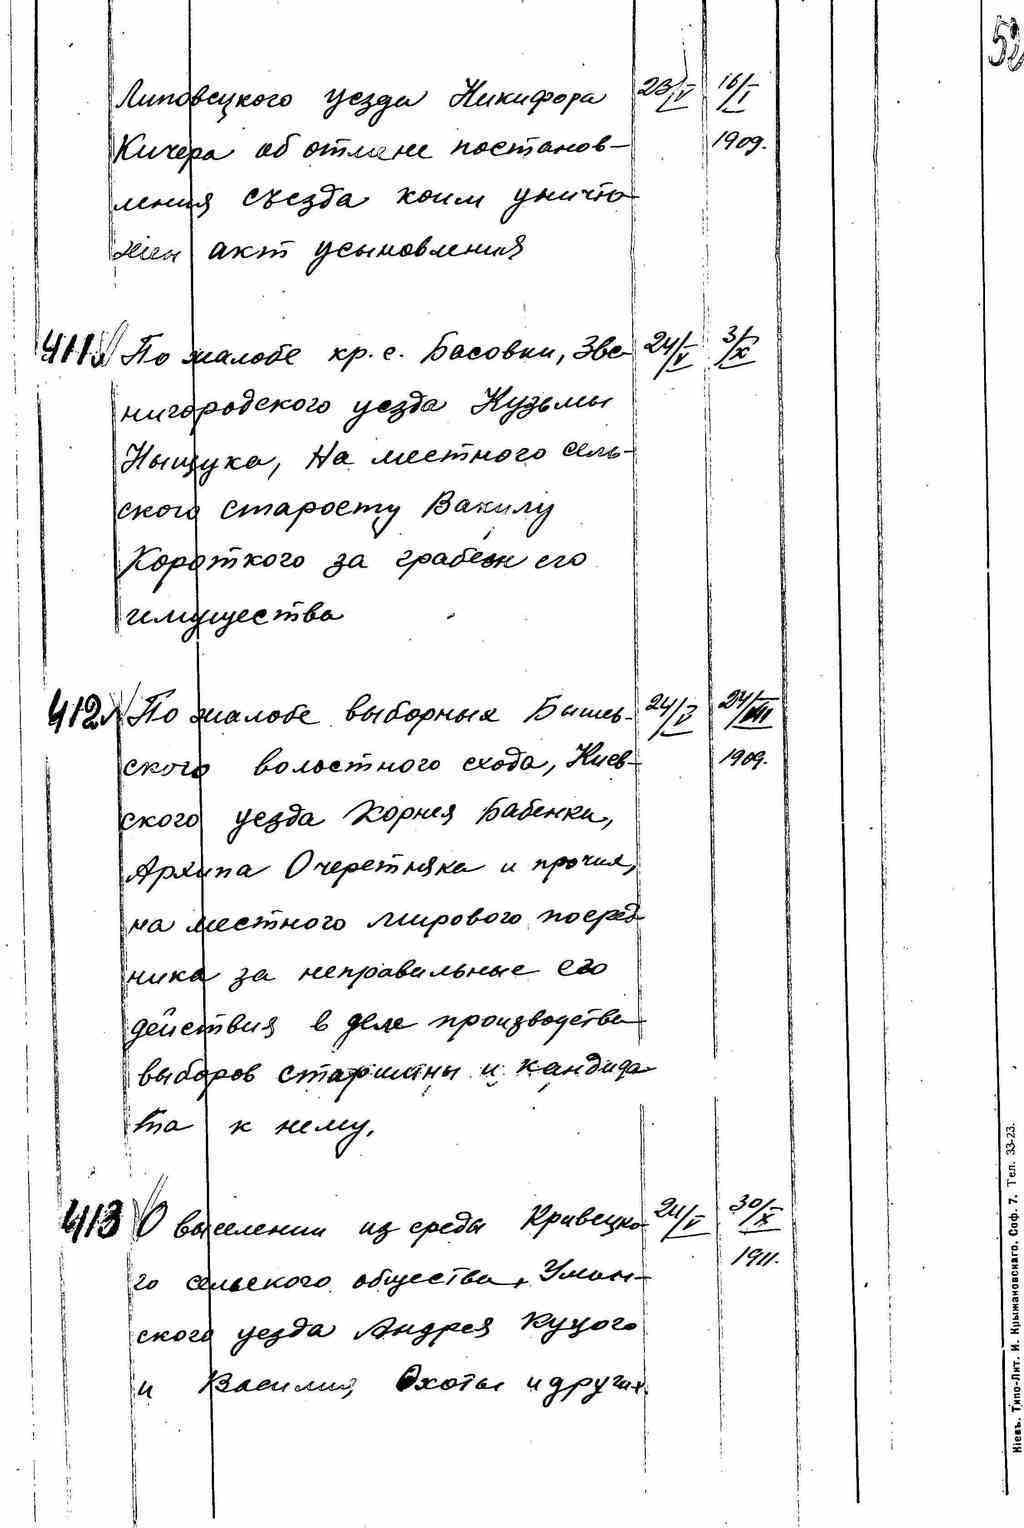 50
Липовецкого уезда Никифора 23/V 16/I
Кичера об отмене постанов- 1909.
ления съезда коим уничто
жен акт усыновления
411 По жалобе кр. с. Басовки, Зве- 24/V 3/X
нигородского уезда Кузьмы
Ныщука, на местного сель-
ского старосту Вакилу
Короткого за грабеж его
имущества
412 По жалобе выборных Бышев- 24/V 24/VIII
ского волостного схода, Киев- 1909.
ского уезда Корнея Бабенки,
Архипа Очеретняка и прочих,
на местного мирового посред
ника за неправильные его
действия в деле производства
выборов старшины и кандида
та к нему,
413 О выселении из среды Кривецко- 24/V 30/X
го сельского общества, Уман- 1911.
ского уезда Андрея Куцого
и Василия Охоты и других.
Кіевъ. Типо-Лит. И. Крыжановскаго. Соф. 7. Тел. 33-23.